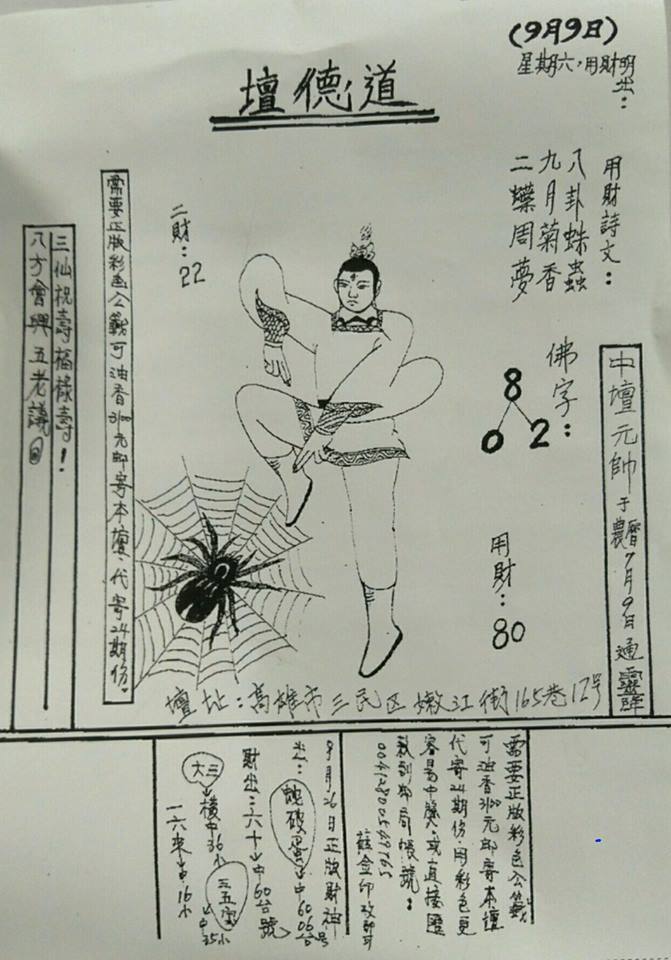 (9月9日)
星期六,用財明出:
道德壇
用財詩文:
八卦蛛蟲
九月菊香
二蝶周夢
佛字:
8
0 2
用財:
80
二財:
22
中壇元帥于農曆7月9日通靈降
需要正版彩色公籤可油香3100元郵寄本壇代寄24期份.
三仙祝壽福祿壽!
八方會興五老議
壇址:高雄市三民区嫩江街165巷12号
需要正版彩色公籤
可油香3100元郵寄本壇
代寄24期份.用彩色更
容易中獎.或直接匯
款到郵局帳號:
9月26日正版財神
出:蛇破蛋→中60 06台号
財出:六十→中60台號
大三→横中36小
三五字→中35小
一六来→中16小